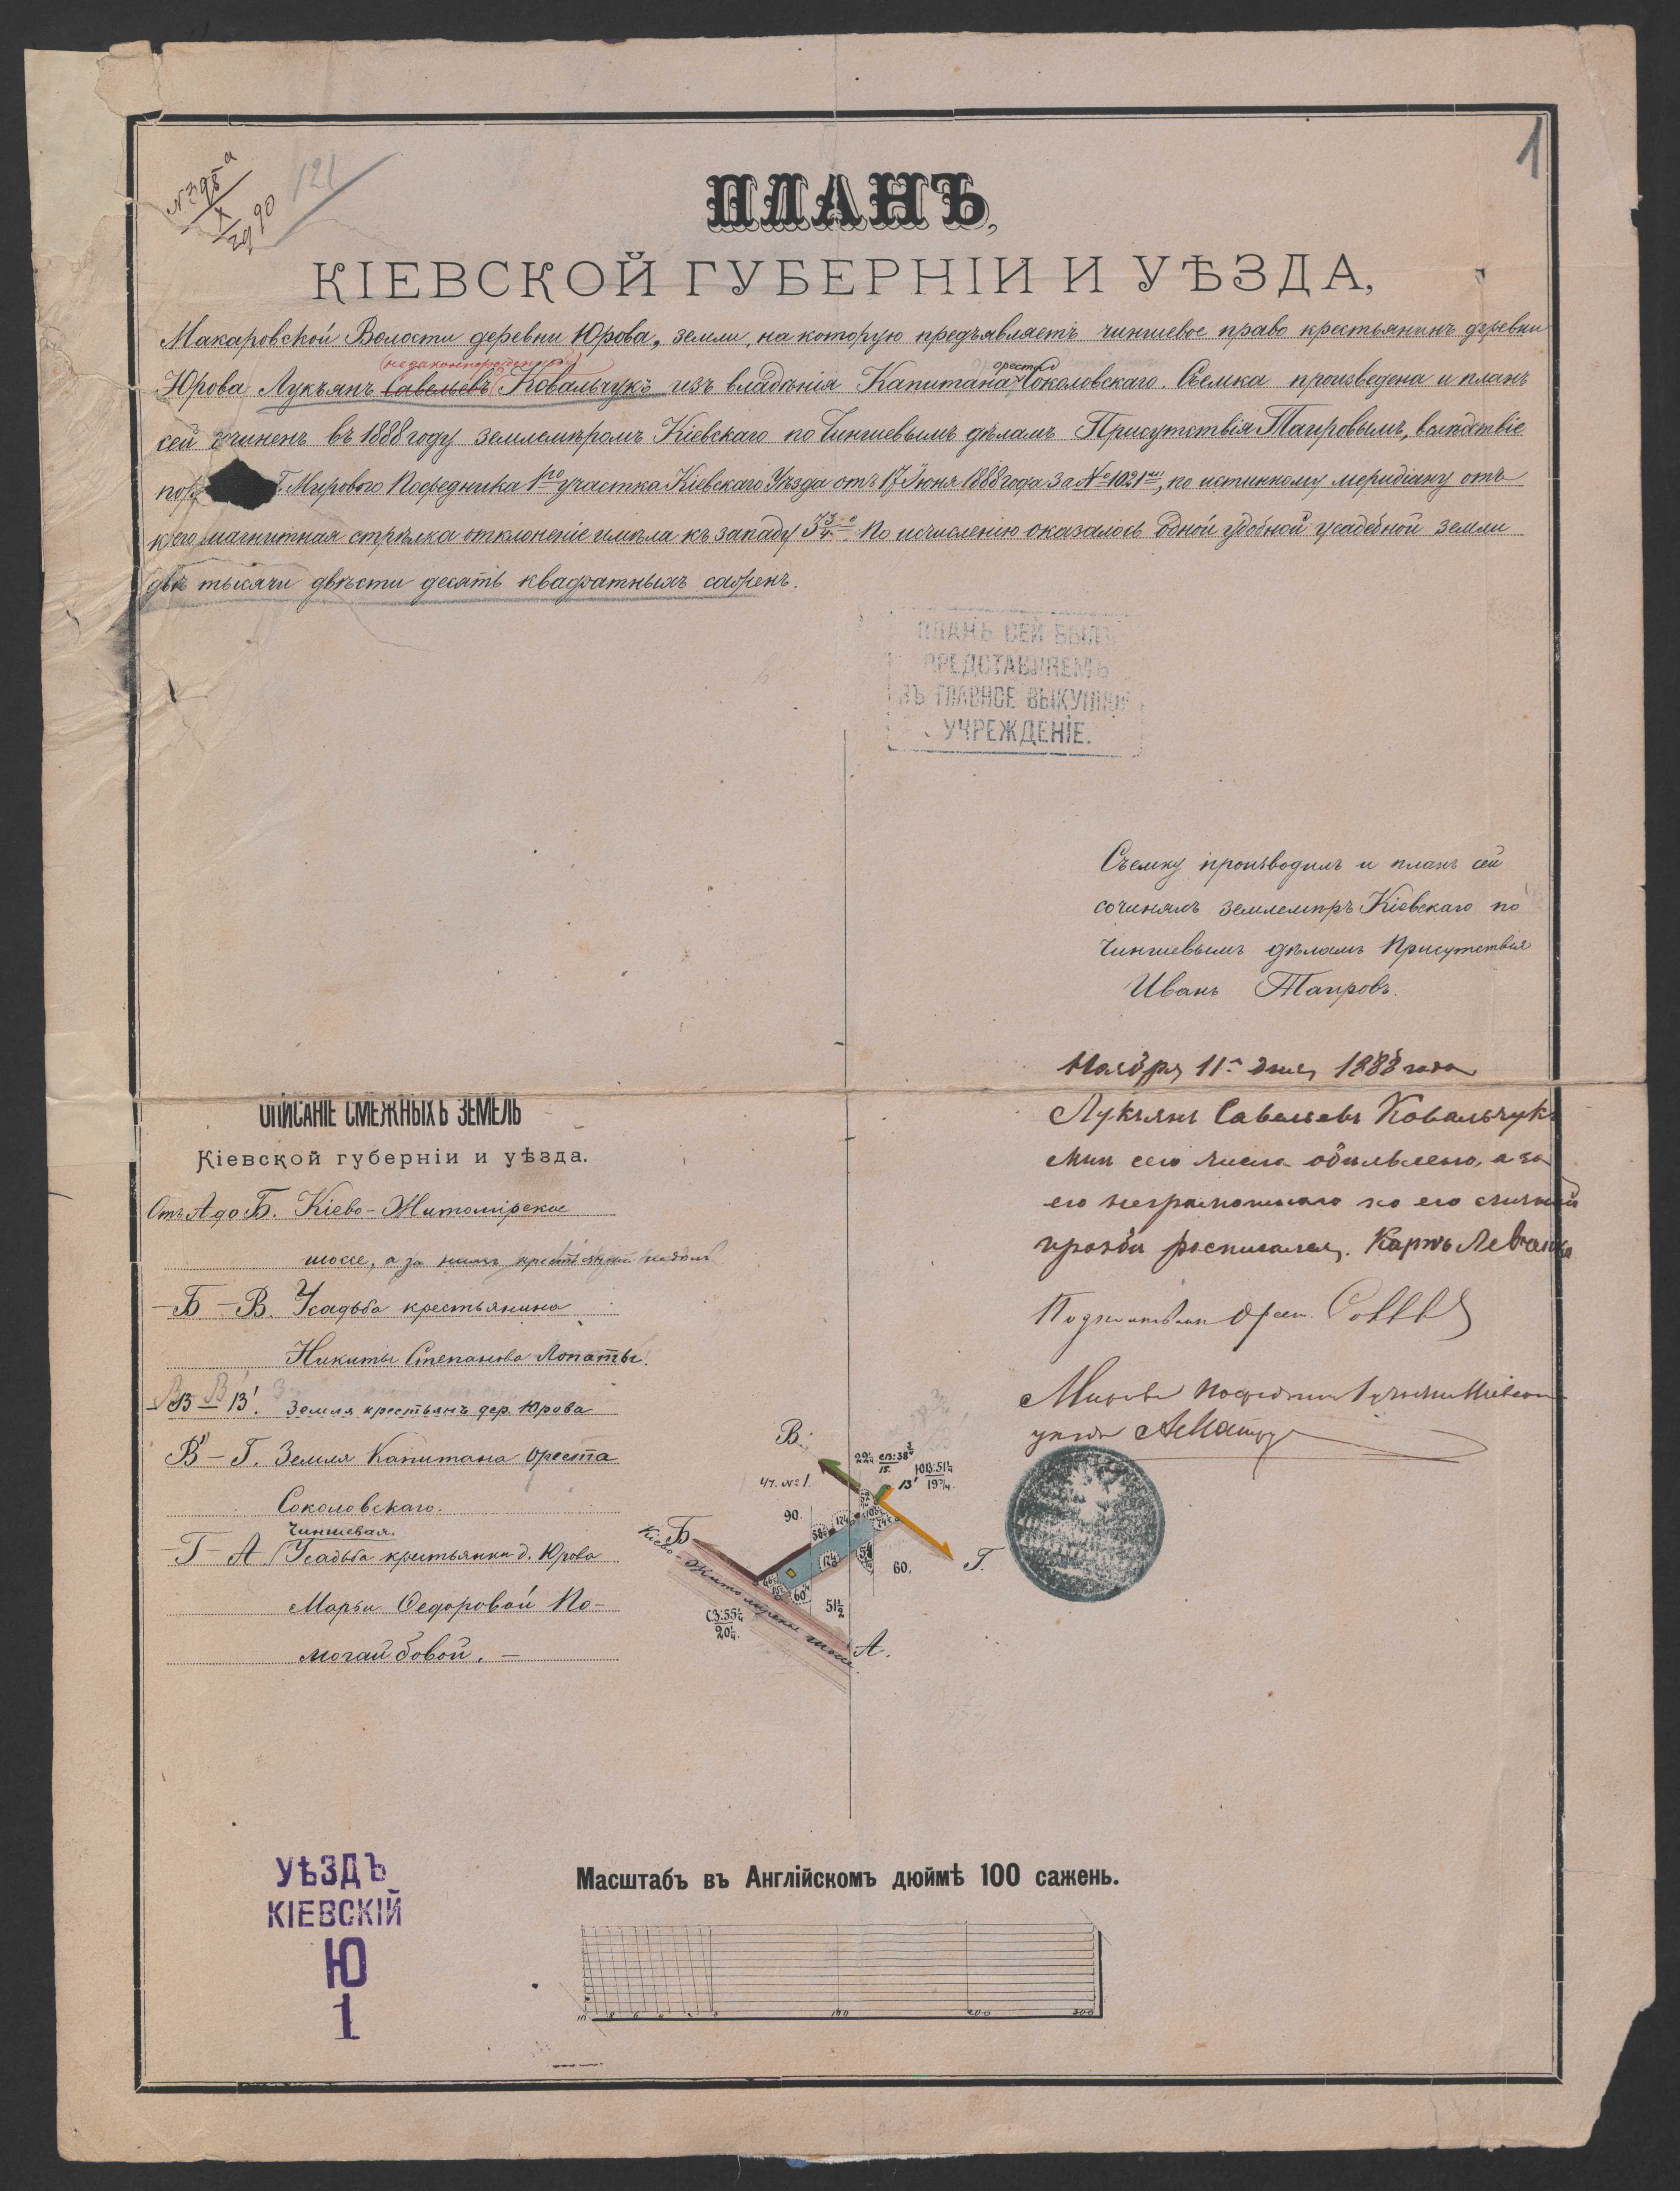 1
121
ПЛАНЪ,
КІЕВСКОЙ ГУБЕРНІИ И УѢЗДА,
Макаровской Волости деревни Юрова, земли, на которую предъявляетъ чиншевое право крестьянинъ деревни
Юрова Лукъянъ Савельевъ Ковальчукъ изъ владѣнія Капитана Ореста Соколовскаго. Съемка произведена и планъ
сей сочиненъ въ 1888 году землемѣромъ Кіевскаго по Чиншевымъ дѣламъ Присутствія Таировымъ, вслѣдствіе
Г. Мирового Посредника 1го участка Кіевскаго Уѣзда отъ 17 Іюня 1888 года за № 1021мъ, по истинному меридіану отъ
коего магнитная стрѣлка отклоненіе имѣла къ западу По исчисленію оказалось одной удобной усадебной земли
двѣ тысячи двѣсти десять квадратныхъ саженъ.
ПЛАНЪ СЕЙ БЫЛЪ
ПРЕДСТАВЛЯЕМЪ
ВЪ ГЛАВНОЕ ВЫКУПНОЕ
УЧРЕЖДЕНІЕ.
Съемку производилъ и планъ сей
сочинялъ землемѣръ Кіевскаго по
Чиншевымъ дѣламъ Присутствія
Иванъ Таировъ.
Ноября 11го дня 1888 года
Лукъянъ Савельевъ Ковальчукъ
Мнѣ сего числа объявлено, а за
его неграмотнаго по его личной
прозби росписался. Карпъ
ОПИСАНІЕ СМЕЖНЫХЪ ЗЕМЕЛЬ
Кіевской губерніи и уѣзда.
Отъ А до Б. Кіево-Житомірское
шоссе, а за нимъ
Б — В. Усадьба крестьянина
Никиты Степанова Лопаты.
В — В'. Земля крестьянъ дер. Юрова
В' — Г. Земля Капитана Ореста
Соколовскаго.
Чиншевая
Г — А Усадьба крестьянки д. Юрова
Марьи Ѳедоровой По-
могайбовой. —
В.
уч. №1.
90.
Б
Г.
60.
51½
СЗ:55¼
20¼.
ЮВ:51¼
19¾.
В'
А.
Кіево-Житомірское шоссе
УѢЗДЪ
КІЕВСКІЙ
Ю
1
Масштабъ въ Англійскомъ дюймѣ 100 сажень.
100 200 300